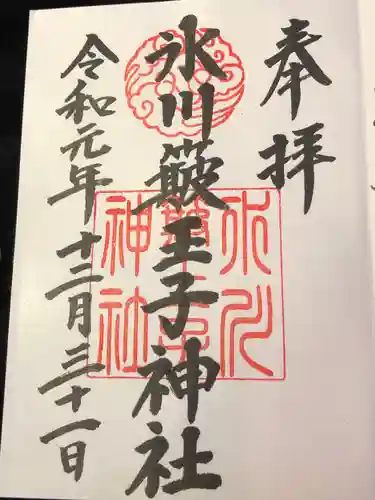 奉拝
氷川簸王子神社
令和元年十二月三十一日
氷川
簸王子
神社